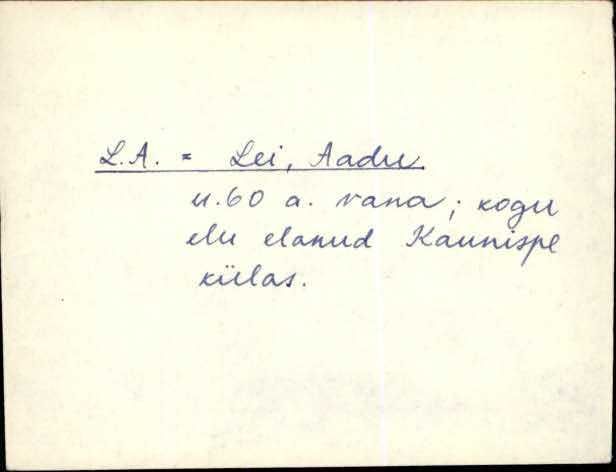 L.A. = Lei, Aadu
u. 60 a. vana; kogu
elu elanud Kaunispe
külas.